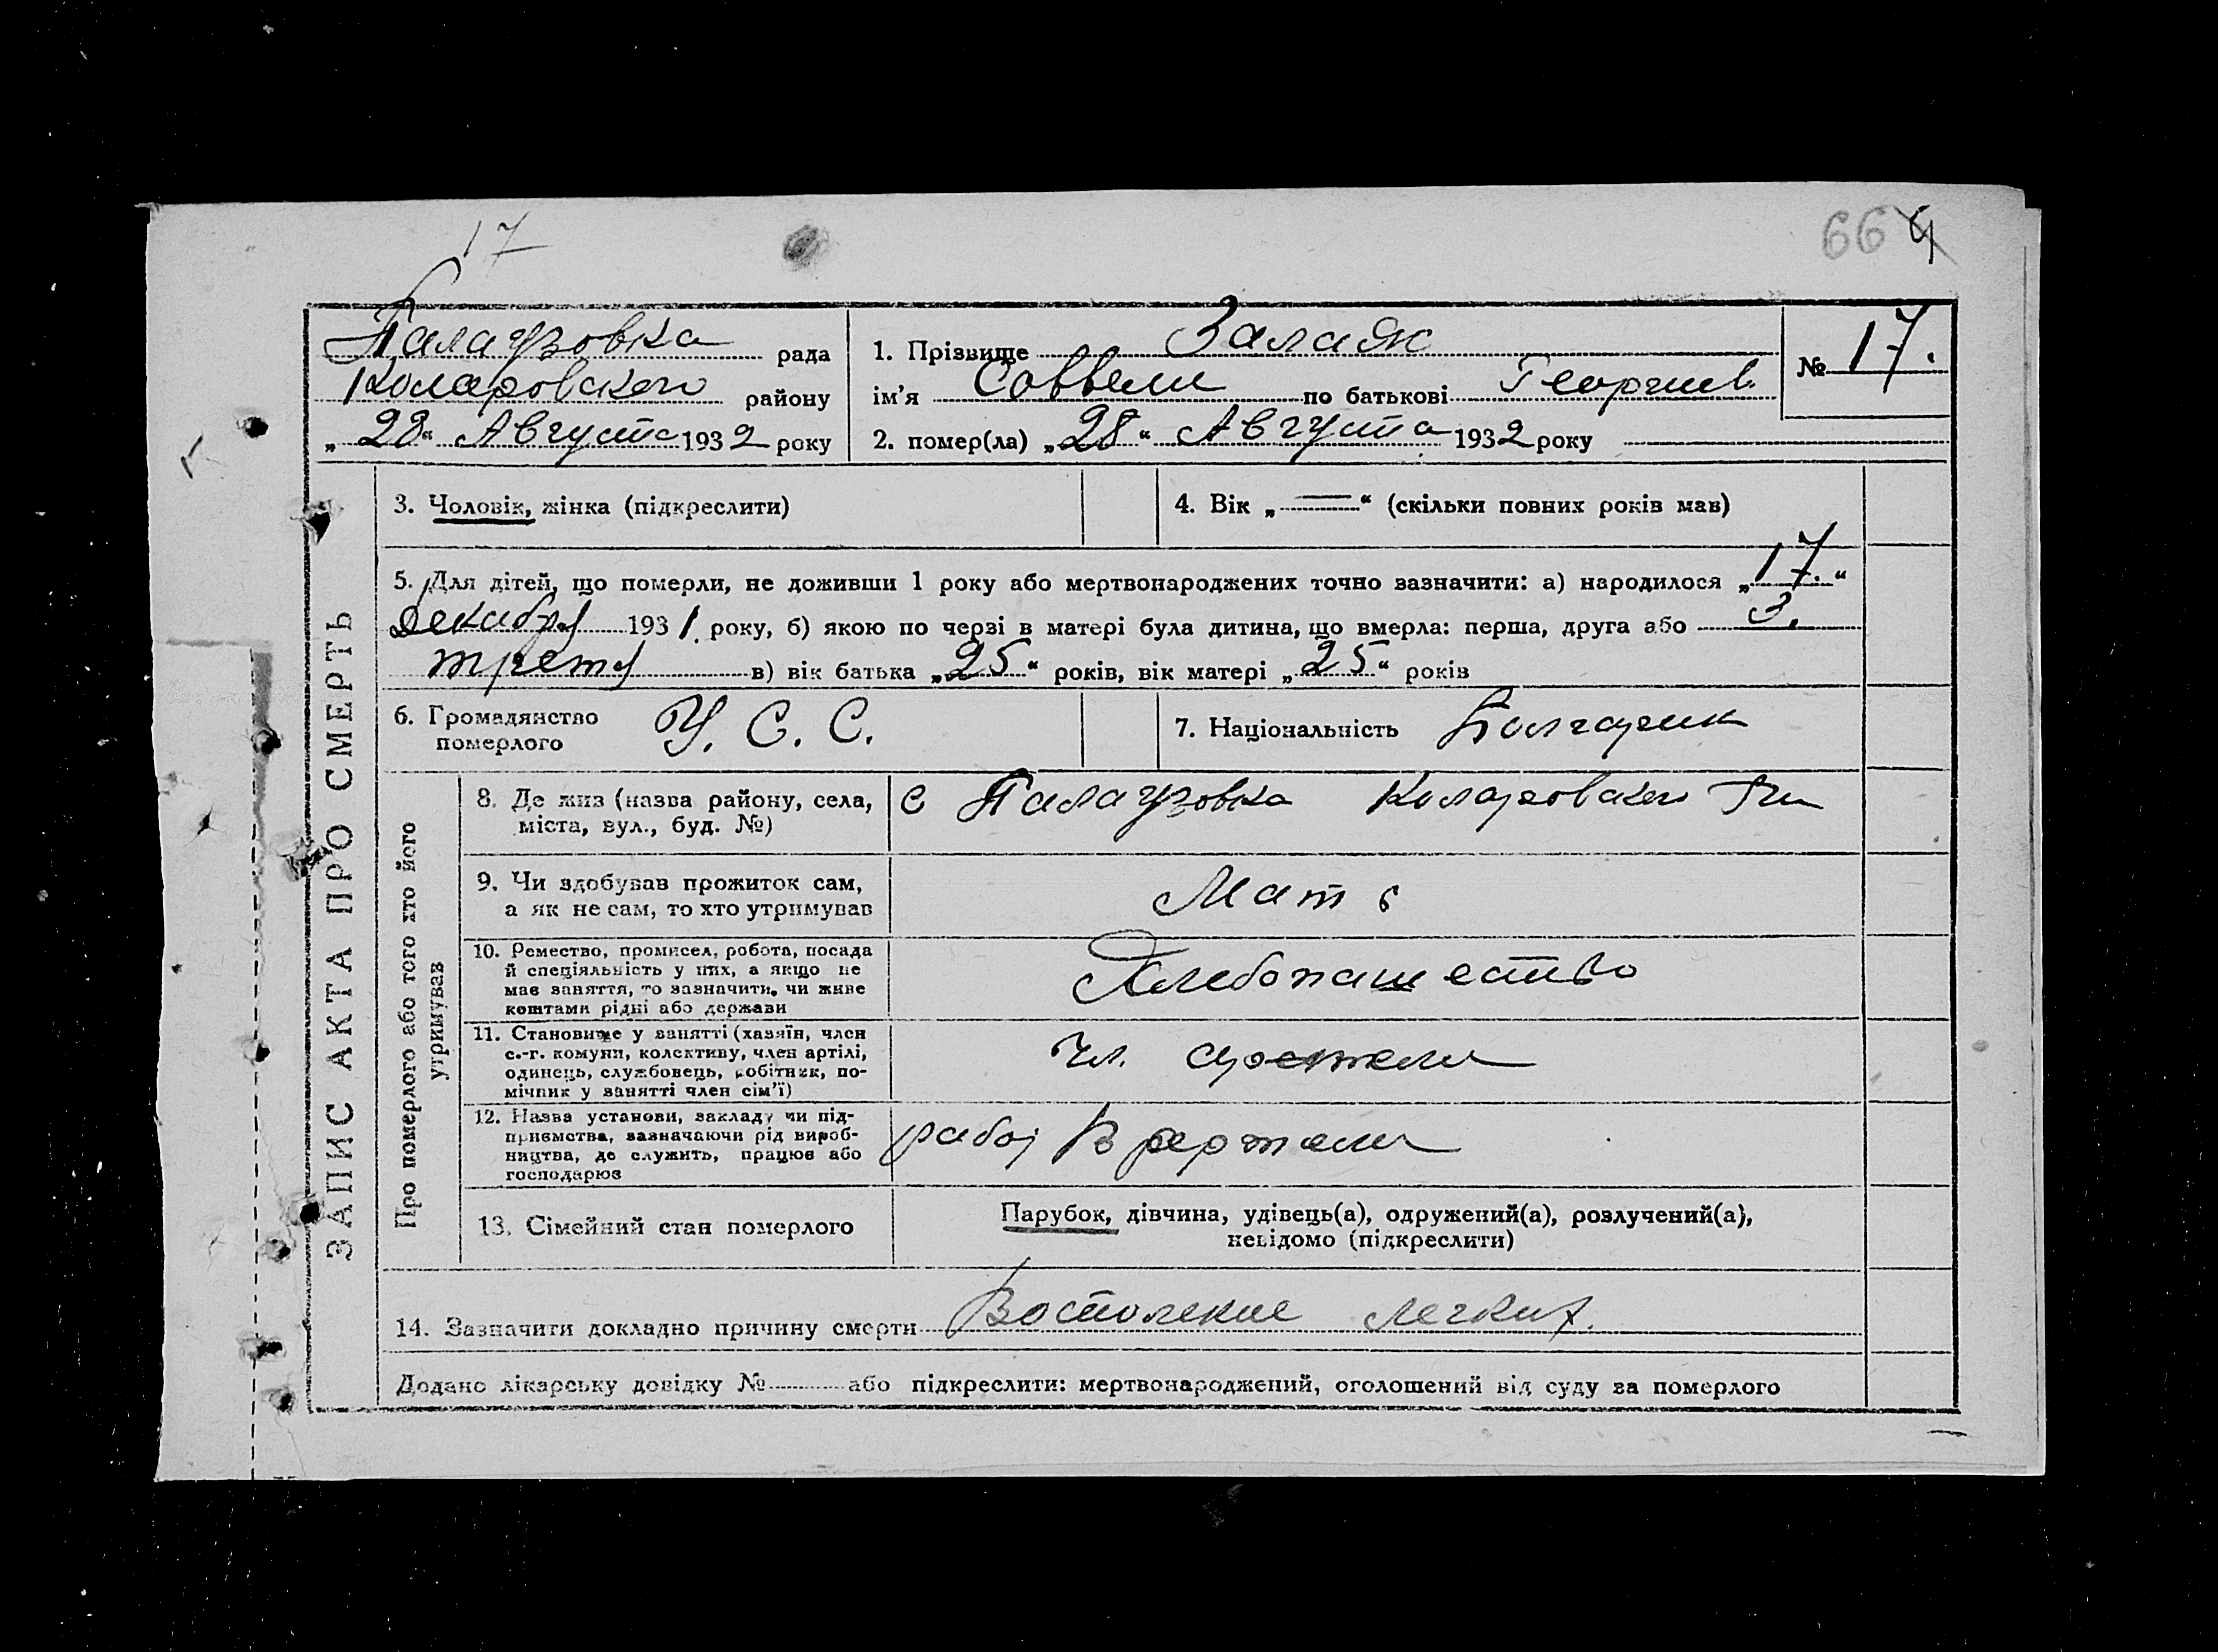 17
66 4
Палаузовка рада
Коларовского району
„28“ Августа 1932 року
1. Прізвище Залаяк
ім'я Соввели по батькові Георгиев.
№ 17.
2. помер(ла) „28“ Августа 1932 року
ЗАПИС АКТА ПРО СМЕРТЬ
3. Чоловік, жінка (підкреслити)
4. Вік „—“ (скільки повних років мав)
5. Для дітей, що померли, не доживши 1 року або мертвонароджених точно зазначити: а) народилося „17.“
Декабря 1931. року, б) якою по черзі в матері була дитина, що вмерла: перша, друга або 3.
третя в) вік батька „25“ років, вік матері „25“ років
6. Громадянство
померлого
У. С. С.
7. Національність Болгарин
Про померлого або того хто його
утримував
8. Де жив (назва району, села,
міста, вул., буд. №)
с Палаузовка Коларовского
9. Чи здобував прожиток сам,
а як не сам, то хто утримував
Мать
10. Ремество, промисел, робота, посада
й спеціяльність у них, а якщо не
мав заняття, то зазначити, чи живе
коштами рідні або держави
Хлебопашество
11. Становище у занятті (хазяїн, член
с.-г. комуни, колективу, член артілі,
одинець, службовець, робітник, по-
мічник у занятті член сім'ї)
Чл. артели
12. Назва установи, закладу чи під-
приємства, зазначаючи рід вироб-
ництва, де служить, працює або
господарює
работ В артели
13. Сімейний стан померлого
Парубок, дівчина, удівець(а), одружений(а), розлучений(а),
невідомо (підкреслити)
14. Зазначити докладно причину смерти Востоление легких.
Додано лікарську довідку № або підкреслити: мертвонароджений, оголошений від суду за померлого